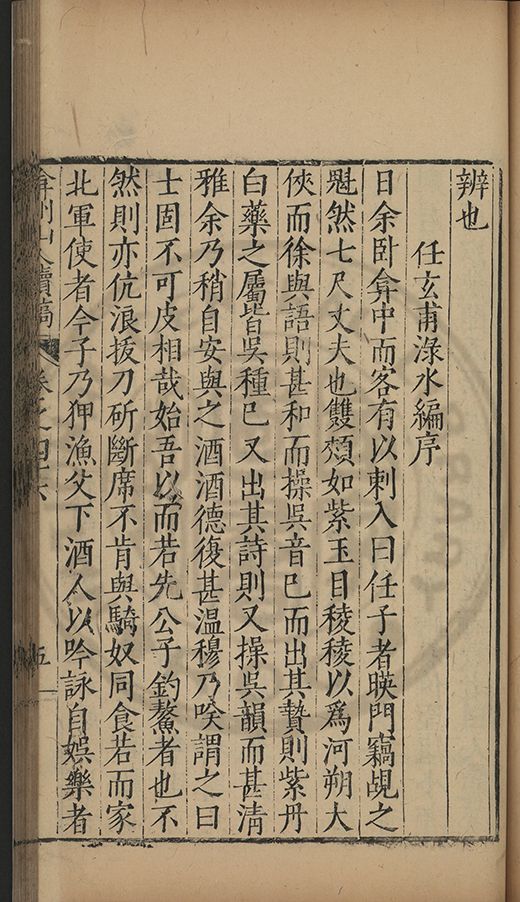 辨也
任玄甫淥水編序
日余臥弇中而客有以刺入曰任子者瞸門竊覘之
魁然七尺丈夫也雙頰如紫玉目稜稜以爲河朔大
俠而徐與語則甚和而操吳音已而出其贄則紫丹
白藥之屬皆吳種已又出其詩則又操吳韻而甚清
雅余乃稍自安與之酒酒德復甚温穆乃咲謂之曰
士固不可皮相哉始吾以而若先公子釣鰲者也不
然則亦伉浪拔刀斫斷席不肯與騎奴同食若而家
北軍使者今子乃狎漁父下酒人以吟詠自娛樂者
弇州山人續稿
卷之四十六
五